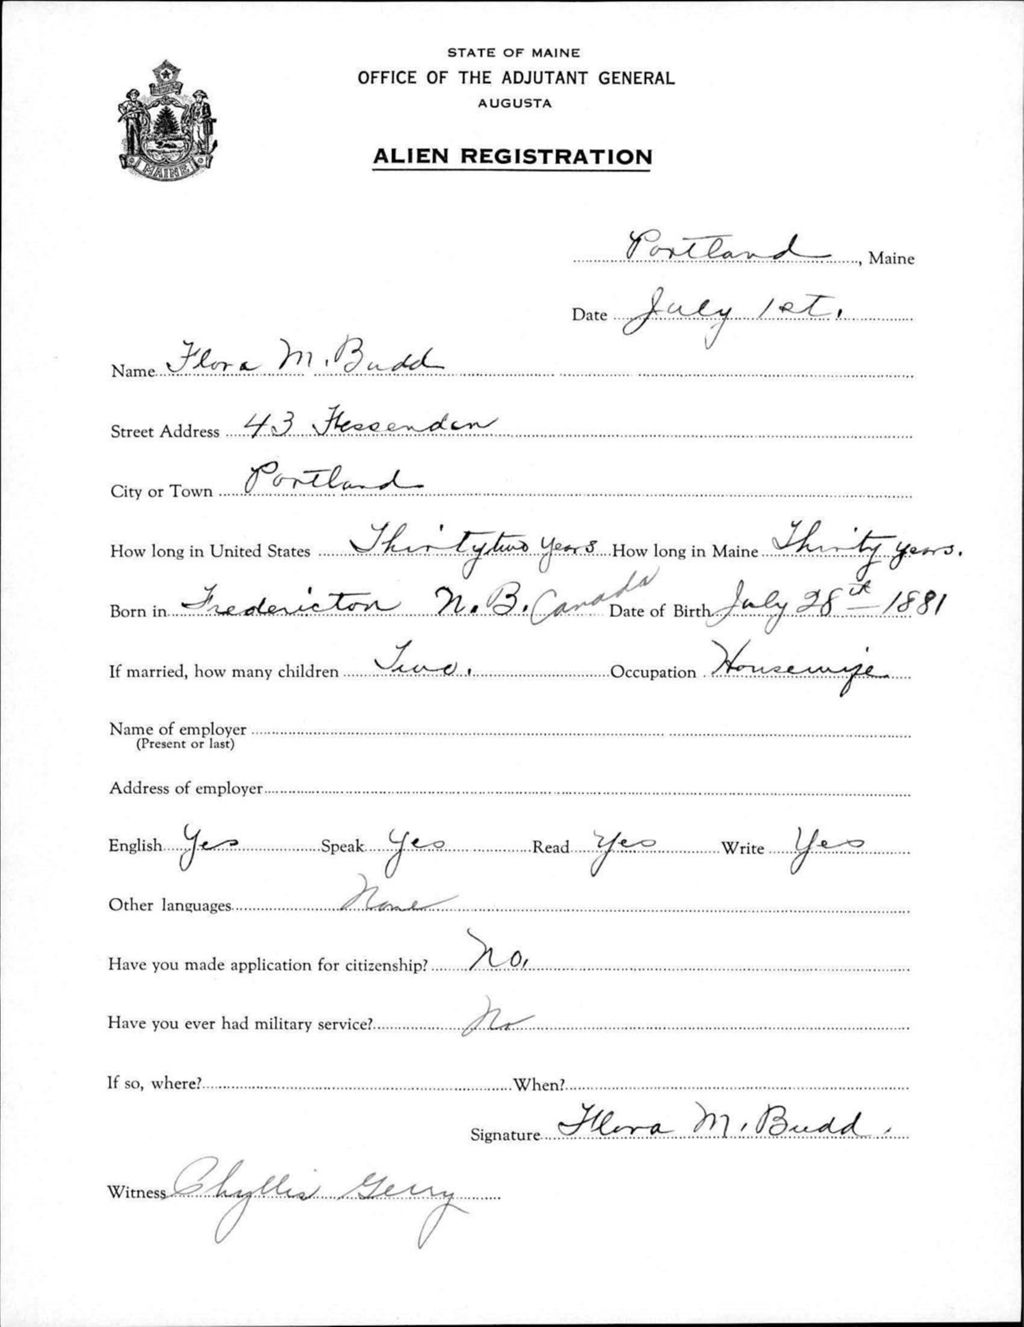 STATE OF MAINE
OFFICE OF THE ADJUTANT GENERAL
AUGUSTA
ALIEN REGISTRATION
MAINE
Portland, Maine
Date July 1st.
Name Flora M. Budd
Street Address 43 Fessenden
City or Town Portland
How long in United States Thirty two years How long in Maine Thirty years.
Born in Fredericton N.B. Canada Date of Birth July 28th 1881
If married, how many children Two. Occupation Housewife
Name of employer
(Present or last)
Address of employer
English Yes Speak Yes Read Yes Write Yes
Other languages None
Have you made application for citizenship? No.
Have you ever had military service? No
If so, where? When?
Signature Flora M. Budd.
Witness Phyllis Gerry